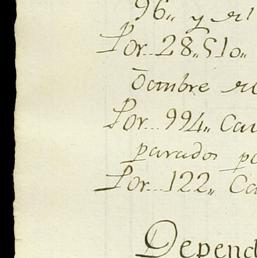 96,, y el
Por... 28,,510,,
Por... 994,, Ca
parados p
Por... 122,, Ca
Depend